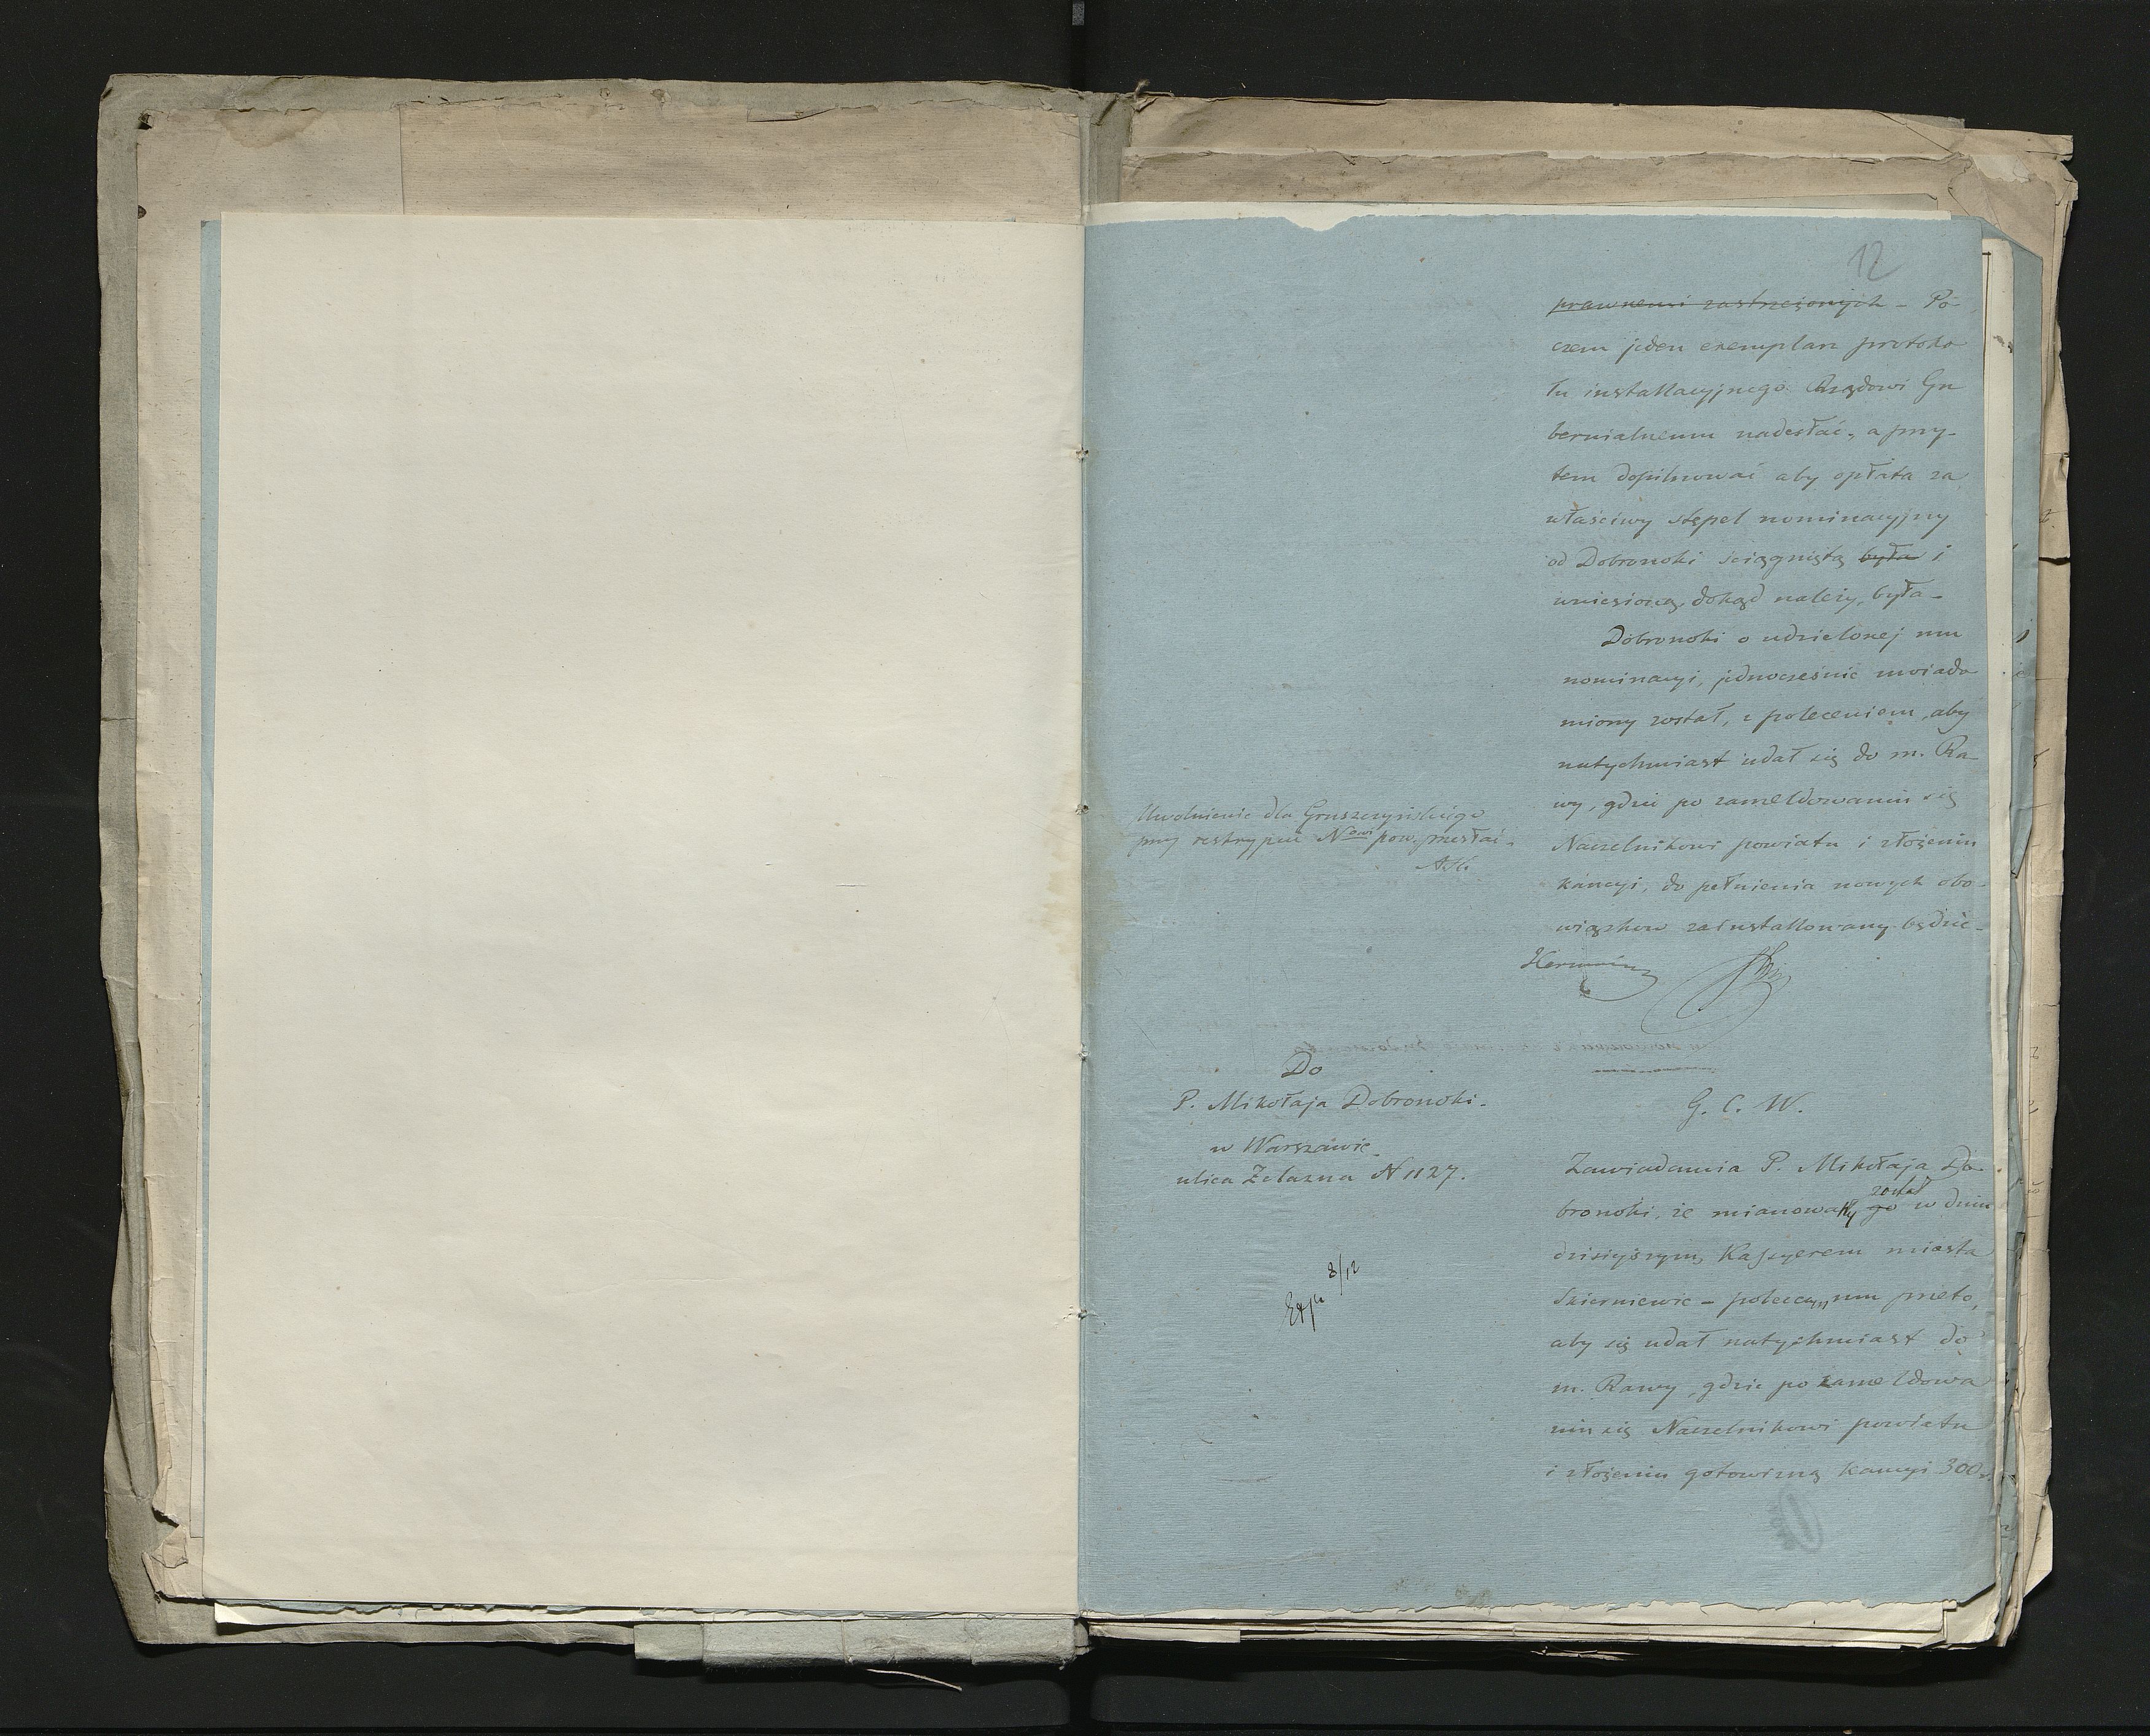 12
prawnemi zastrzeżonych - Po-
czem jeden exemplarz protoko
łu installacyjnego Rządowi Gu
bernialnemu nadesłać, a przy-
tem dopilnować aby opłata za
właściwy stępel nominacyjny
od Dobronoki ściągniętą była i
wniesioną, dokąd należy, była -
Dobronoki o udzielonej mu
nominacyi, jednocześnie uwiado
miony został, z poleceniem, aby
natychmiast udał się do m. Ra-
wy, gdzie po zameldowaniu się
Naczelnikowi powiatu i złożeniu
kaucyi, do pełnienia nowych obo-
wiązkow zainstallowany będzie -
Uwolnienie dla Gruszczyńskiego
przy reskrypcie Nowi pow. przesłać -
Do
P. Mikołaja Dobronoki -
w Warszawie -
ulica Żelazna N 1127.
8/12
Exp
G. C. W.
Zawiadamia P. Mikołaja Do-
bronoki, że mianowany go został w dniu
dzisiejszym, Kassyerem miasta
Skierniewic - polecając mu przeto,
aby się udał natychmiast do
m. Rawy, gdzie po zameldowa
niu się Naczelnikowi powiatu
i złożeniu gotowizną kaucyi 300